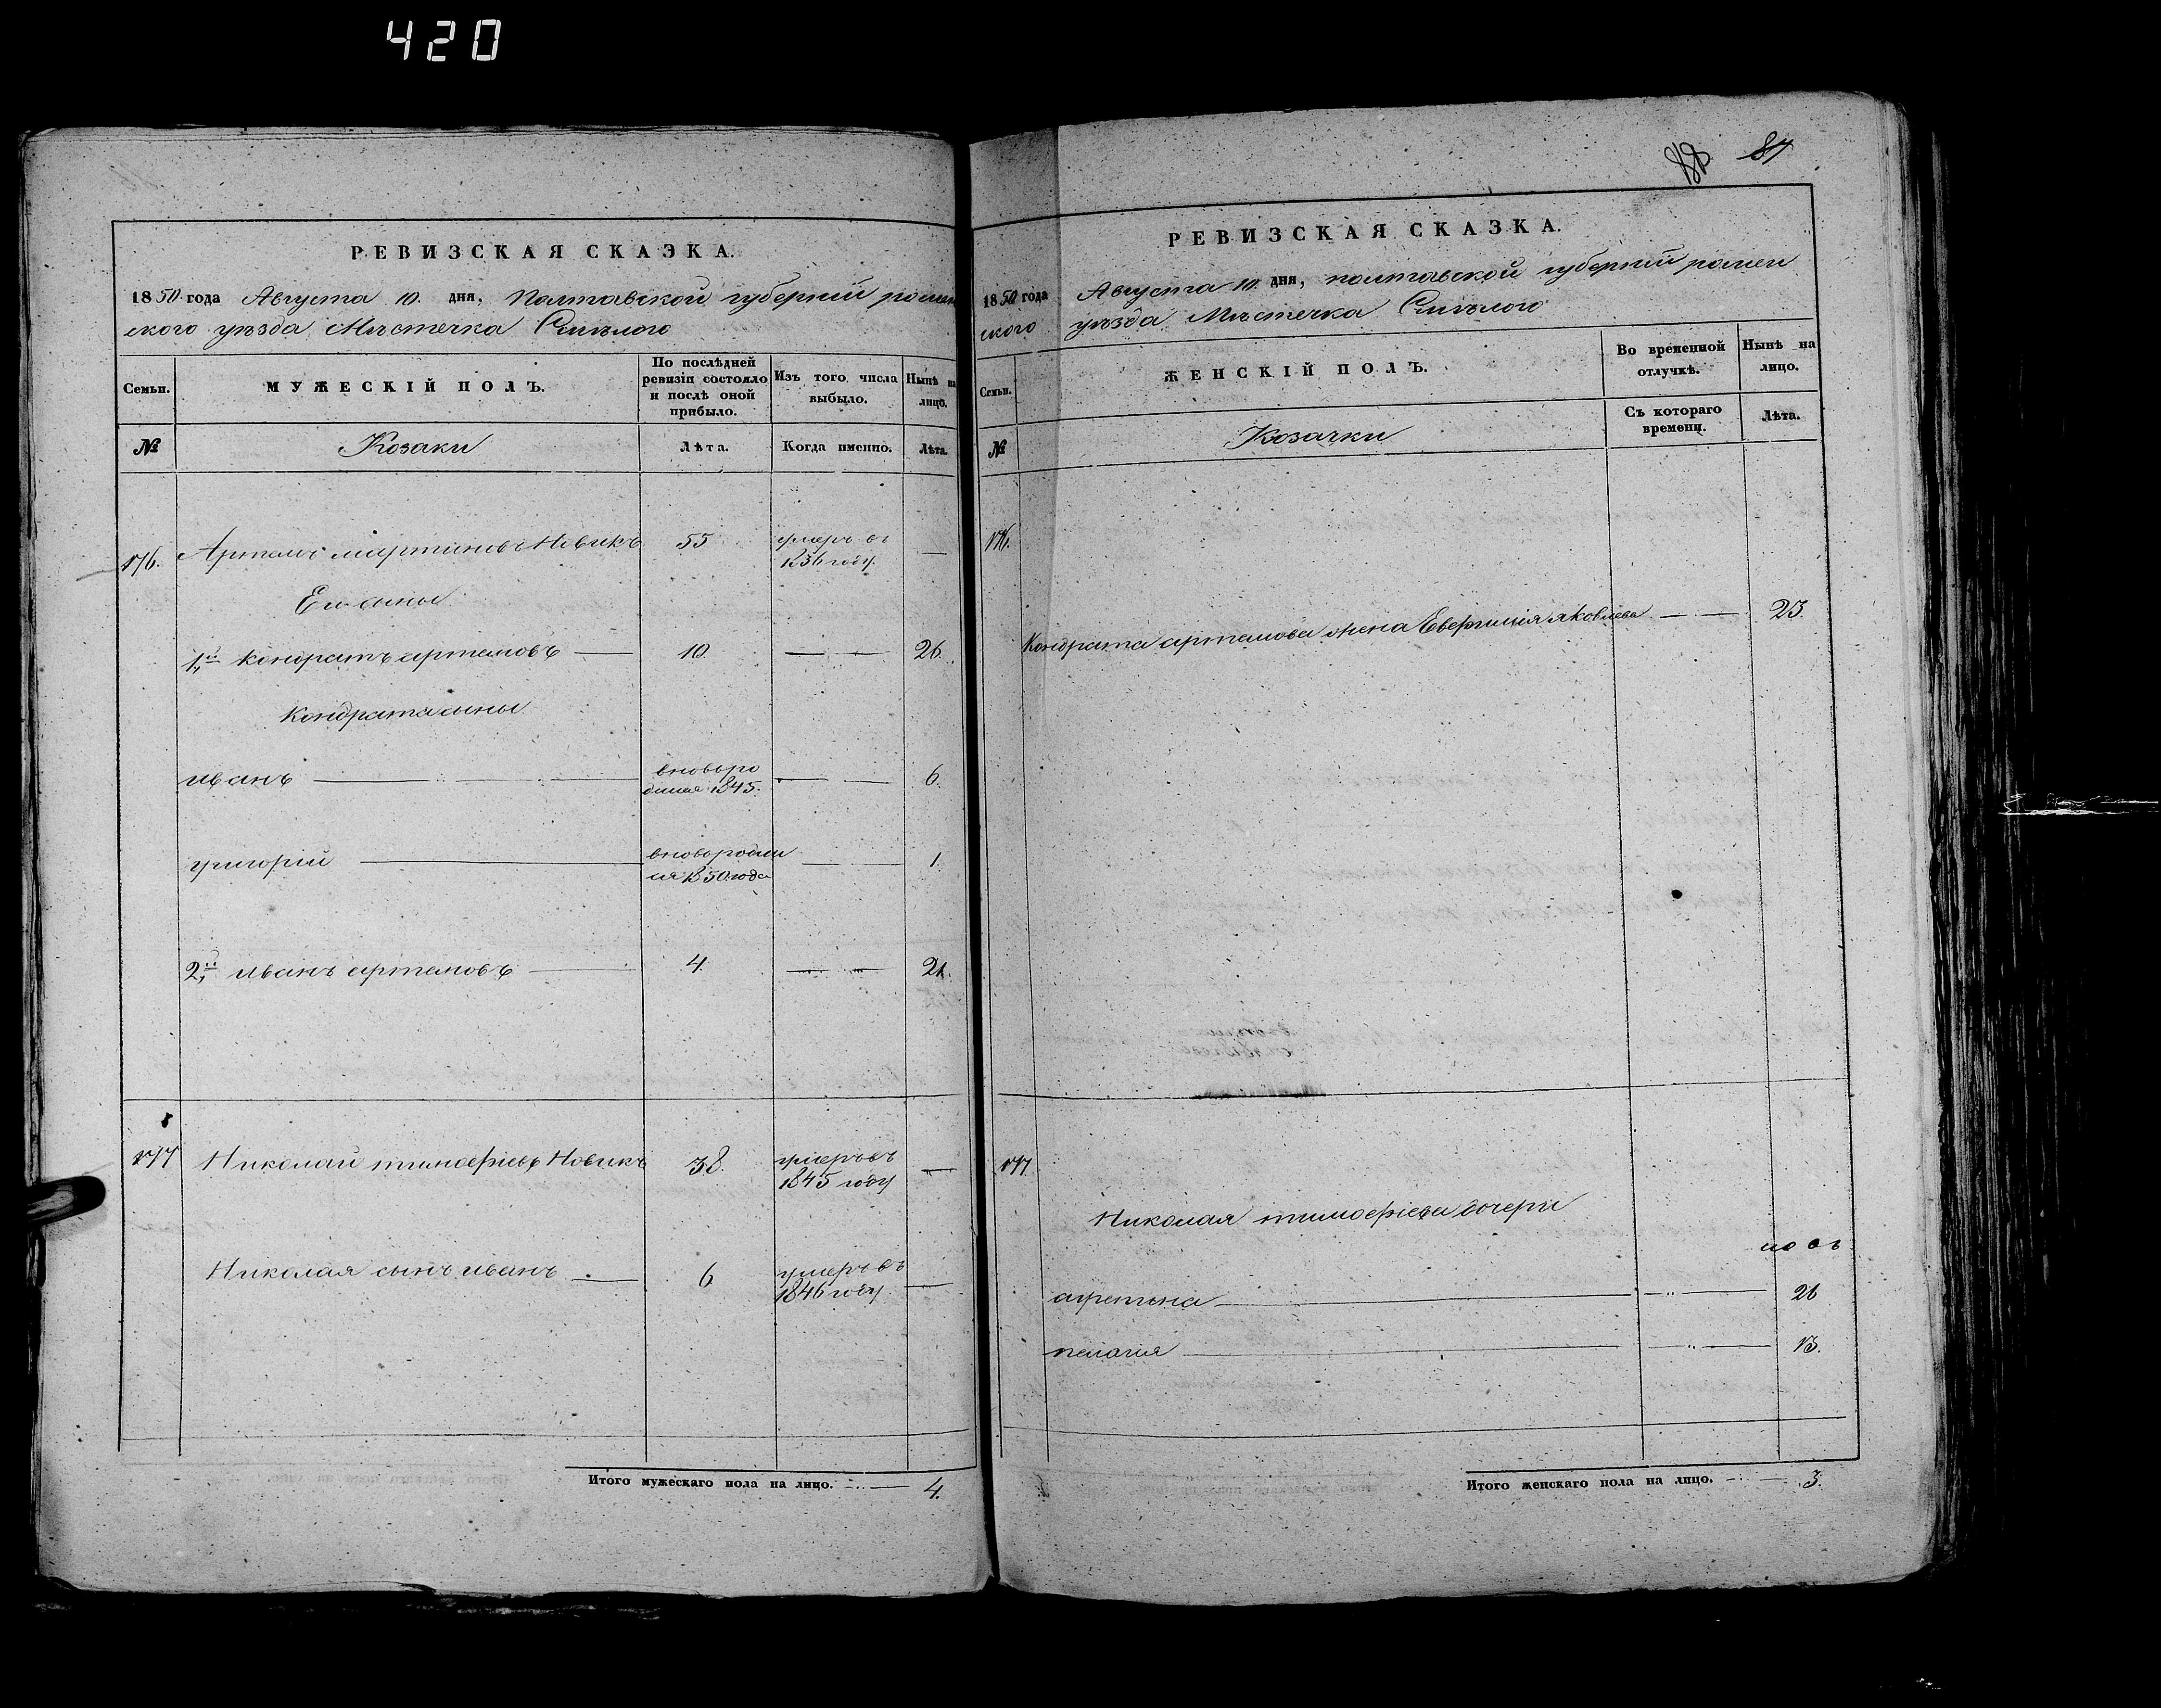 420
РЕВИЗСКАЯ СКАЗКА.
1850 года Августа 10. дня, Полтавской губерніи ромен
ского уѣзда Мѣстечка Смѣлого
Семьи.
МУЖЕСКІЙ ПОЛЪ.
По послѣдней ревизіи состояло и послѣ оной прибыло.
Изъ того числа выбыло.
Нынѣ на лицо.
№
Козаки
Лѣта.
Когда именно.
Лѣта.
176. Артемъ мартиновъ Новикъ 55 умеръ въ —
1836 году.
Его сыны
1й кондратъ артемовъ — 10. — — 26.
Кондрата сыны
иванъ — вновьро — — 6.
дился 1845.
григорій — вновьродил — 1.
ся 1850 года
2й иванъ артемовъ — 4. — — 21.
177 Николай тимоѳѣевъ Новикъ 38. умеръ въ —
1845 году
Николая сынъ иванъ — 6 умеръ въ —
1846 году
Итого мужескаго пола на лицо. — 4.
88 87
РЕВИЗСКАЯ СКАЗКА.
1850 года Августа 10. дня, полтавской губерніи ромен
ского уѣзда Мѣстечка Смѣлого
Семьи.
ЖЕНСКІЙ ПОЛЪ.
Во временной отлучкѣ.
Нынѣ на лицо.
№
Козачки
Съ котораго времени.
Лѣта.
176.
Кондрата артемова жена Евфимія яковлева — — 23.
177.
Николая тимоѳѣева дочери
— — 26
пелагия — — 13.
Итого женскаго пола на лицо. — 3.